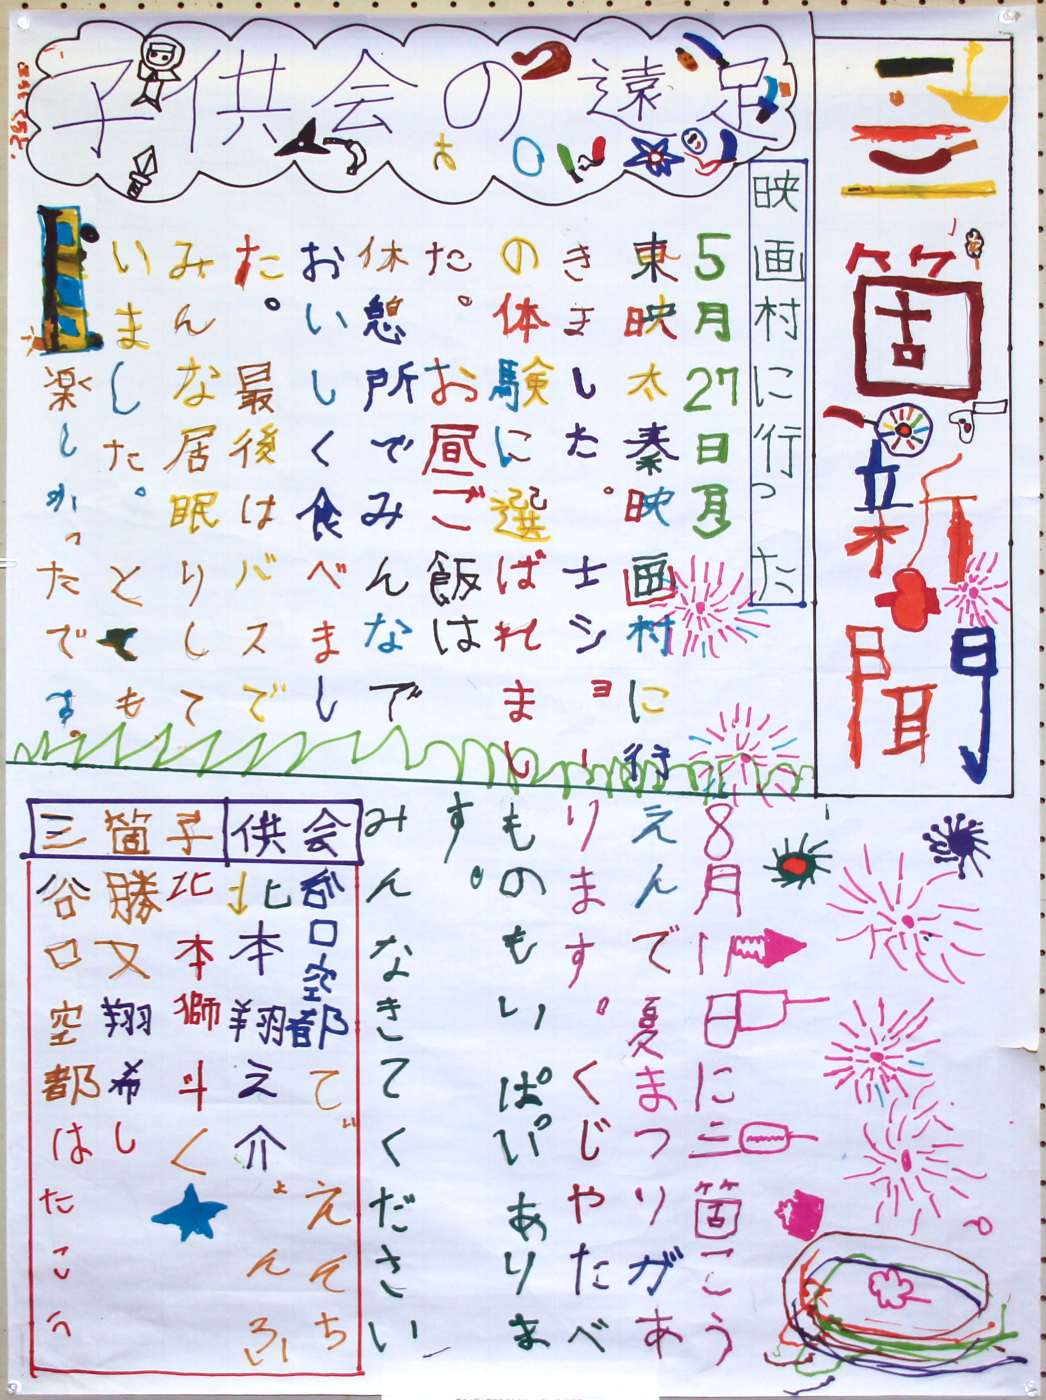 三箇新聞
子供会の遠足
映画村に行った
5月27日
東映太秦映画村に行
きました。士ショー
の体験に選ばれまし
た。お昼ご飯は
休憩所でみんなで
おいしく食べまし
た。最後はバスで
みんな居眠りして
いました。とても
楽しかったです。
8月11日に三箇こう
えんで夏まつりがあ
ります。くじやたべ
ものもいっぱいありま
す。
みんなきてください
三箇子供会
谷口空都
北本翔
北本獅斗
勝又翔希
谷口空都